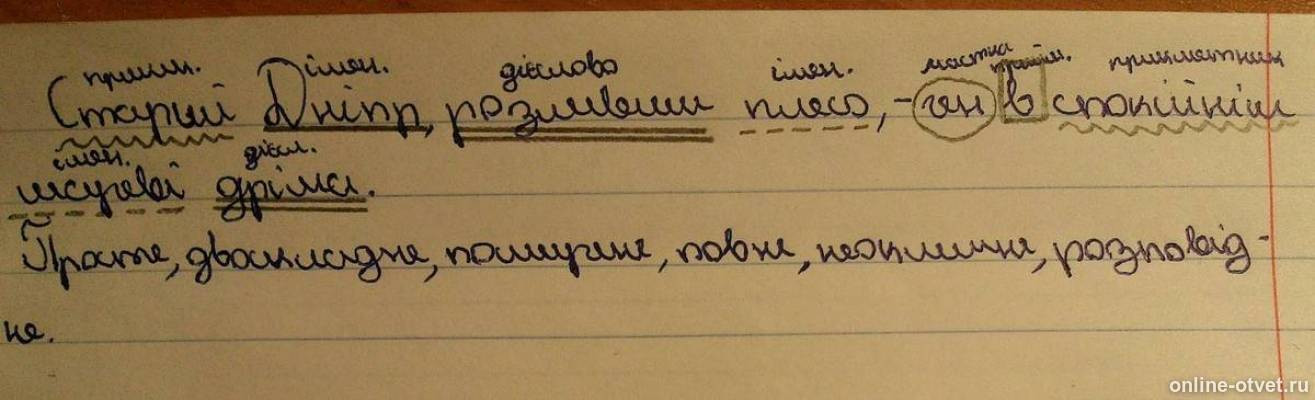 прикм. імен. дієслово імен. частка прийм. прикметник
Старий Дніпр, розливши плесо, - ген в спокійнім
імен. дієсл.
шугаві дріма.
Просте, двоскладне, поширене, повне, неокличне, розповід-
не.
online-otvet.ru